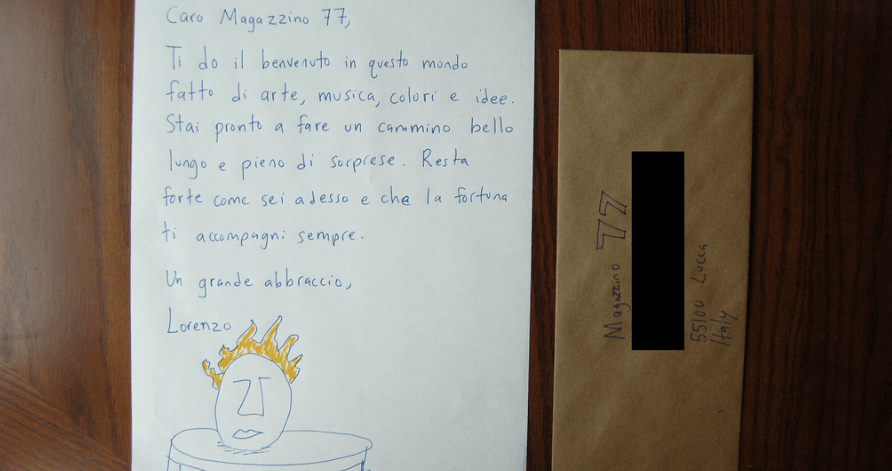 Caro Magazzino 77,
Ti do il benvenuto in questo mondo
fatto di arte, musica, colori e idee.
Stai pronto a fare un cammino bello
lungo e pieno di sorprese. Resta
forte come sei adesso e che la fortuna
ti accompagni sempre.
Un grande abbraccio,
Lorenzo
Magazzino 77
55100 Lucca
Italy